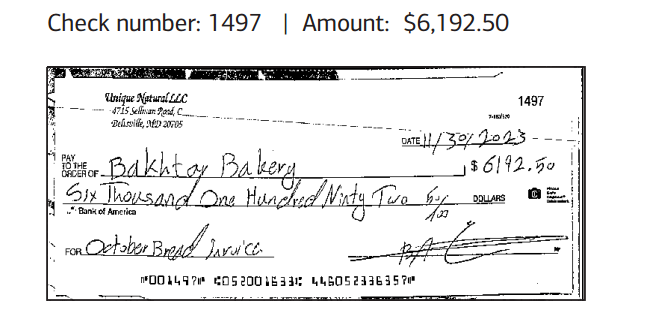 Check number: 1497 | Amount: $6,192.50
Unique Natural LLC
4715 Sellman Road, C
Beltsville, MD 20705
1497
DATE 11/30/2023
PAY TO THE ORDER OF Bakhtar Bakery $ 6192.50
Six Thousand One Hundred Ninty Two 50/100 DOLLARS
Bank of America
FOR October Bread Invoice
⑈001497⑈ ⑆052001633⑆ 446052336357⑈